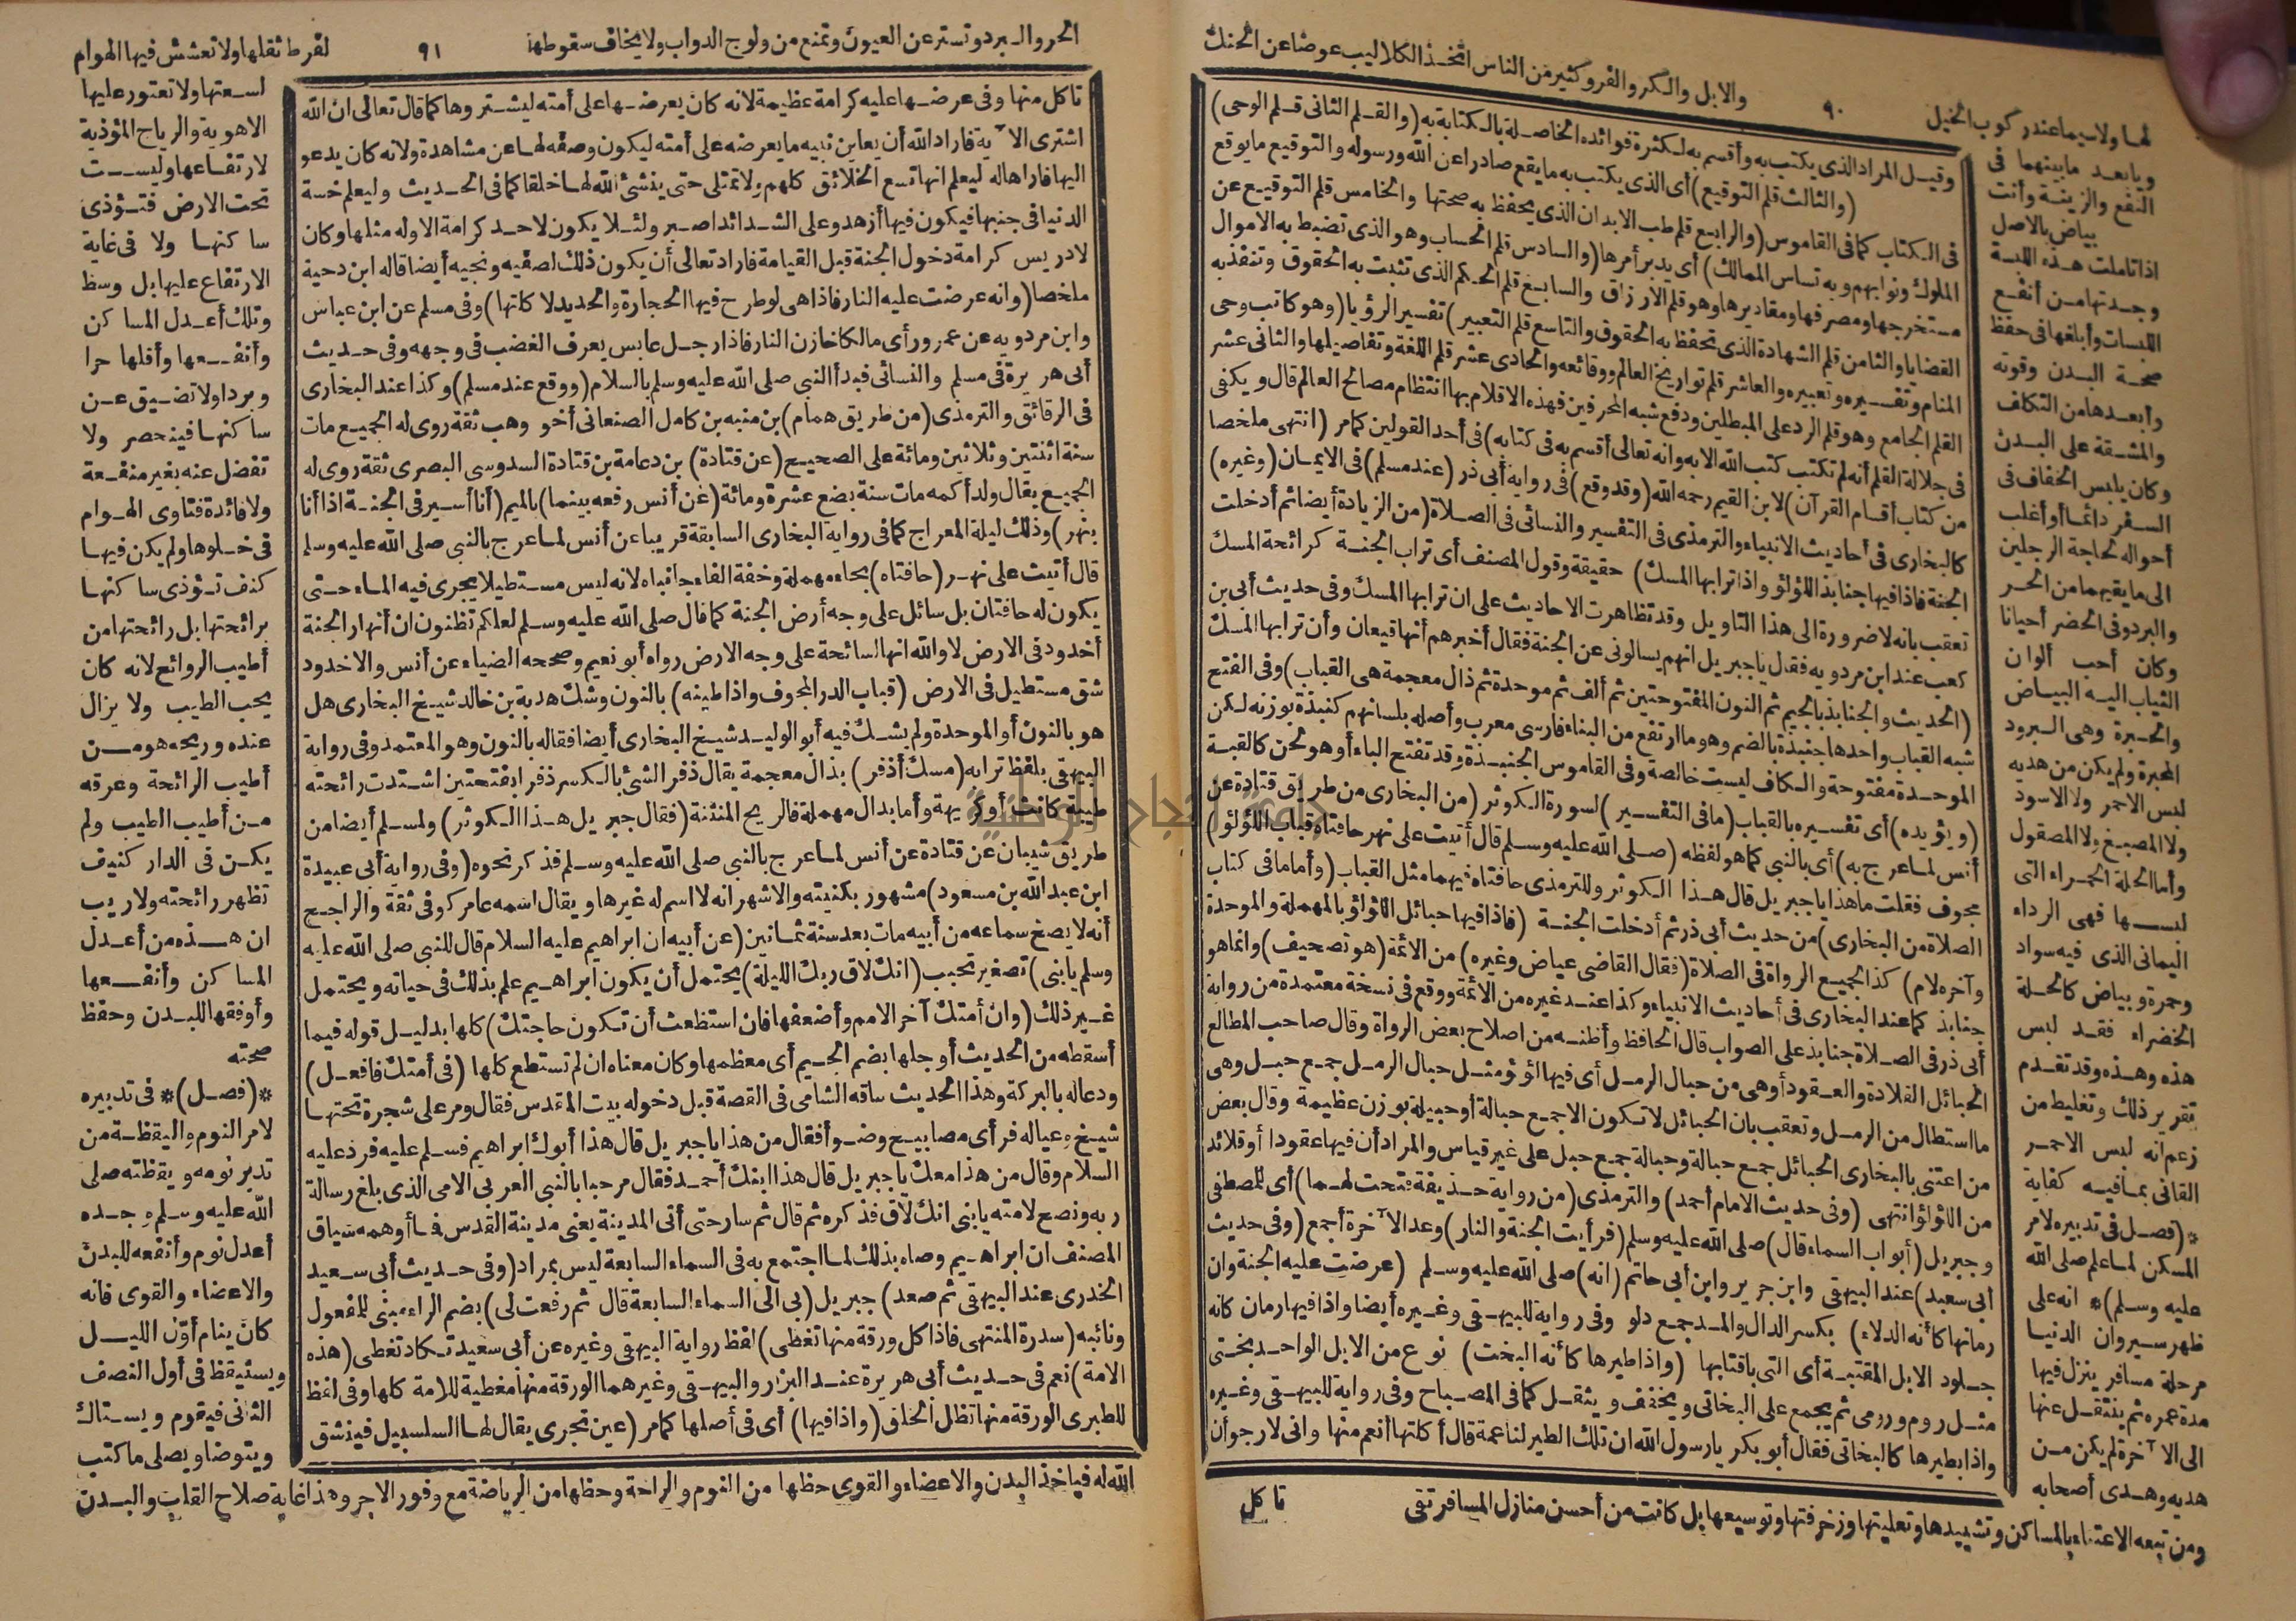 والابل والكر والفر وكثير من الناس اتخذ الكلاليب عوضا عن الحنك
٩٠
لها ولاب ما عند ركوب الخيل
ويابعد ما بينهما فى
النفع والزينة وأنت
بياض بالاصل
اذا تاملت هذه اللبسة
وجدتها من أنفع
اللبسات وأبلغها فى حفظ
صحة البدن وقوته
وأبعدها من التكلف
والمشقة على البدن
وكان يلبس الخفاف فى
السفر دائما أو أغلب
أحواله لحاجة الرجلين
الى ما يقيهما من الحر
والبرد وفى الحضر أحيانا
وكان أحب ألوان
الثياب اليه البياض
والحبرة وهى البرود
المحبرة ولم يكن من هديه
لبس الاحمر ولا الاسود
ولا المصبغ ولا المصقول
وأما الحلة الحمراء التى
لبسها فهى الرداء
اليمانى الذى فيه سواد
وحمرة وبياض كالحلة
الخضراء فقد لبس
هذه وهذه وقد تقدم
تقرير ذلك وتغليط من
زعم انه لبس الاحمر
القانى بما فيه كفاية
*(فصل فى تدبيره لامر
المسكن لما علم صلى الله
عليه وسلم)* انه على
ظهر سير وان الدنيا
مرحلة مسافر ينزل فيها
مدة عمره ثم ينتقل عنها
الى الآخرة لم يكن من
هديه وهدى أصحابه
ومن تبعه الاعتناء بالمساكن وتشييدها وتعليتها وزخرفتها وتوسيعها بل كانت من أحسن منازل المسافر تقى
وقيل المراد الذى يكتب به وأقسم به لكثرة فوائده الحاصلة بالكتابة به (والقلم الثانى قلم الوحى)
(والثالث قلم التوقيع) أى الذى يكتب به ما يقع صادرا عن الله ورسوله والتوقيع ما يوقع
فى الكتاب كما فى القاموس (والرابع قلم طب الابدان الذى يحفظ به صحتها والخامس قلم التوقيع عن
الملوك ونوابهم وبه تساس الممالك) أى يدبر أمرها (والسادس قلم الحساب وهو الذى تضبط به الاموال
مستخرجها ومصرفها ومقاديرها وهو قلم الارزاق والسابع قلم الحكم الذى تثبت به الحقوق وتنفذ به
القضايا والثامن قلم الشهادة الذى تحفظ به الحقوق والتاسع قلم التعبير) تفسير الرؤيا (وهو كاتب وحى
المنام وتفسيره وتعبيره والعاشر قلم تواريخ العالم ووقائعه والحادى عشر قلم اللغة وتفاصيلها والثانى عشر
القلم الجامع وهو قلم الرد على المبطلين ودفع شبه المحرفين فهذه الاقلام بها انتظام مصالح العالم قال ويكفى
فى جلالة القلم أنه لم تكتب كتب الله الا به وانه تعالى أقسم به فى كتابه) فى أحد القولين كما مر (انتهى ملخصا
من كتاب أقسام القرآن) لابن القيم رحمه الله (وقد وقع) فى رواية أبى ذر (عند مسلم) فى الايمان (وغيره)
كالبخارى فى أحاديث الانبياء والترمذى فى التفسير والنسائى فى الصلاة (من الزيادة أيضا ثم أدخلت
الجنة فاذا فيها جنابذ اللؤلؤ واذا ترابها المسك) حقيقة وقول المصنف أى تراب الجنة كرائحة المسك
تعقب بانه لا ضرورة الى هذا التاويل وقد تظاهرت الاحاديث على ان ترابها المسك وفى حديث أبى بن
كعب عند ابن مردويه فقال يا جبريل انهم يسالونى عن الجنة فقال أخبرهم أنها قيعان وأن ترابها المسك
(الحديث والجنابذ بالجيم ثم النون المفتوحتين ثم ألف ثم موحدة ثم ذال معجمة هى القباب) وفى الفتح
شبه القباب واحدها جنبذة بالضم وهو ما ارتفع من البناء فارسى معرب وأصله بلسانهم كنبذة بوزنه لكن
الموحدة مفتوحة والكاف ليست خالصة وفى القاموس الجنبذة وقد تفتح الباء أو هو لحن كالقبة
(ويؤيده) أى تفسيره بالقباب (ما فى التفسير) لسورة الكوثر (من البخارى من طريق قتادة عن
أنس لما عرج به) أى بالنبى كما هو لفظه (صلى الله عليه وسلم قال أتيت على نهر حافتاه قباب اللؤلؤ)
مجوف فقلت ما هذا يا جبريل قال هذا الكوثر وللترمذى حافتاه فيهما مثل القباب (وأما ما فى كتاب
الصلاة من البخارى) من حديث أبى ذر ثم أدخلت الجنة (فاذا فيها حبائل اللؤلؤ بالمهملة والموحدة
وآخره لام) كذا لجميع الرواة فى الصلاة (فقال القاضى عياض وغيره) من الائمة (هو تصحيف) وانما هو
جنابذ كما عند البخارى فى أحاديث الانبياء وكذا عند غيره من الائمة ووقع فى نسخة معتمدة من رواية
أبى ذر فى الصلاة جنابذ على الصواب قال الحافظ وأظنه من اصلاح بعض الرواة وقال صاحب المطالع
الحبائل القلادة والعقود أو هى من حبال الرمل أى فيها لؤلؤ مثل حبال الرمل جمع حبل وهى
ما استطال من الرمل وتعقب بان الحبائل لا تكون الا جمع حبالة أو حبيلة بوزن عظيمة وقال بعض
من اعتنى بالبخارى الحبائل جمع حبالة وحبالة جمع حبل على غير قياس والمراد أن فيها عقودا أو قلائد
من اللؤلؤ انتهى (وفى حديث الامام أحمد) والترمذى (من رواية حذيفة فتحت لهما) أى للمصطفى
وجبريل (أبواب السماء قال) صلى الله عليه وسلم (فرأيت الجنة والنار) وعد الآخرة أجمع (وفى حديث
أبى سعيد) عند البيهقى وابن جرير وابن أبى حاتم (انه) صلى الله عليه وسلم (عرضت عليه الجنة وان
رمانها كأنه الدلاء) بكسر الدال والمد جمع دلو وفى رواية للبيهقى وغيره أيضا واذا فيها رمان كانه
جلود الابل المقتبة أى التى باقتابها (واذا طيرها كأنه البخت) نوع من الابل الواحد بختى
مثل روم ورومى ثم يجمع على البخاتى ويخفف ويثقل كما فى المصباح وفى رواية للبيهقى وغيره
واذا بطيرها كالبخاتى فقال أبو بكر يا رسول الله ان تلك الطير لناعمة قال أكلتها أنعم منها وانى لارجو أن
تاكل
الحر والبرد وتستر عن العيون وتمنع من ولوج الدواب ولا يخاف سقوطها
٩١
لفرط ثقلها ولا تعشش فيها الهوام
لسعتها ولا تعتور عليها
الاهوية والرياح المؤذية
لارتفاعها وليست
تحت الارض فتؤذى
ساكنها ولا فى غاية
الارتفاع عليها بل وسط
وتلك أعدل المساكن
وأنفعها وأقلها حرا
وبردا ولا تضيق عن
ساكنها فينحصر ولا
تفضل عنه بغير منفعة
ولا فائدة فتاوى الهوام
فى خلوها ولم يكن فيها
كنف تؤذى ساكنها
برائحتها بل رائحتها من
أطيب الروائح لانه كان
يحب الطيب ولا يزال
عنده وريحه هو من
أطيب الرائحة وعرقه
من أطيب الطيب ولم
يكن فى الدار كنيف
تظهر رائحته ولا ريب
ان هذه من أعدل
المساكن وأنفعها
وأوفقها للبدن وحفظ
صحته
*(فصل)* فى تدبيره
لامر النوم واليقظة من
تدبر نومه ويقظته صلى
الله عليه وسلم وجده
أعدل نوم وأنفعه للبدن
والاعضاء والقوى فانه
كان ينام أوّل الليل
ويستيقظ فى أول النصف
الثانى فيقوم ويستاك
ويتوضا ويصلى ما كتب
الله له فياخذ البدن والاعضاء والقوى حظها من النوم والراحة وحظها من الرياضة مع وفور الاجر وهذا غاية صلاح القلب والبدن
تاكل منها وفى عرضها عليه كرامة عظيمة لانه كان يعرضها على أمته ليشتروها كما قال تعالى ان الله
اشترى الآية فاراد الله أن يعاين نبيه ما يعرضه على أمته ليكون وصفه لها عن مشاهدة ولانه كان يدعو
اليها فاراها له ليعلم انها تسع الخلائق كلهم ولا تمتلى حتى ينشئ الله لها خلقا كما فى الحديث وليعلم خسة
الدنيا فى جنبها فيكون فيها أزهد وعلى الشدائد اصبر ولئلا يكون لاحد كرامة الا وله مثلها وكان
لادريس كرامة دخول الجنة قبل القيامة فاراد تعالى أن يكون ذلك لصفيه ونجيه أيضا قاله ابن دحية
ملخصا (وانه عرضت عليه النار فاذا هى لو طرح فيها الحجارة والحديد لاكلتها) وفى مسلم عن ابن عباس
وابن مردويه عن عمر ورأى مالكا خازن النار فاذا رجل عابس يعرف الغضب فى وجهه وفى حديث
أبى هريرة فى مسلم والنسائى فبدأ النبى صلى الله عليه وسلم بالسلام (ووقع عند مسلم) وكذا عند البخارى
فى الرقائق والترمذى (من طريق همام) بن منبه بن كامل الصنعانى أخو وهب ثقة روى له الجميع مات
سنة اثنتين وثلاثين ومائة على الصحيح (عن قتادة) بن دعامة بن قتادة السدوسى البصرى ثقة روى له
الجميع يقال ولد أكمه مات سنة بضع عشرة ومائة (عن أنس رفعه بينما) بالميم (أنا أسير فى الجنة اذا أنا
بنهر) وذلك ليلة المعراج كما فى رواية البخارى السابقة قريبا عن أنس لما عرج بالنبى صلى الله عليه وسلم
قال أتيت على نهر (حافتاه) بحاء مهملة وخفة الفاء جانباه لانه ليس مستطيلا يجرى فيه الماء حتى
يكون له حافتان بل سائل على وجه أرض الجنة كما قال صلى الله عليه وسلم لعلكم تظنون ان أنهار الجنة
أخدود فى الارض لا والله انها لسائحة على وجه الارض رواه أبو نعيم وصححه الضياء عن أنس والاخدود
شق مستطيل فى الارض (قباب الدر المجوف واذا طينه) بالنون وشك هدبة بن خالد شيخ البخارى هل
هو بالنون أو الموحدة ولم يشك فيه أبو الوليد شيخ البخارى أيضا فقاله بالنون وهو المعتمد وفى رواية
البيهقى بلفظ ترابه (مسك أذفر) بذال معجمة يقال ذفر الشئ بالكسر ذفرا بفتحتين اشتدت رائحته
طيبة كانت أو كريهة وأما بدال مهملة فالريح المنتنة (فقال جبريل هذا الكوثر) ولمسلم أيضا من
طريق شيبان عن قتادة عن أنس لما عرج بالنبى صلى الله عليه وسلم فذكر نحوه (وفى رواية أبى عبيدة
ابن عبد الله بن مسعود) مشهور بكنيته والاشهر انه لا اسم له غيرها ويقال اسمه عامر كوفى ثقة والراجح
أنه لا يصح سماعه من أبيه مات بعد سنة ثمانين (عن أبيه ان ابراهيم عليه السلام قال للنبى صلى الله عليه
وسلم يا بنى) تصغير تحبب (انك لاق ربك الليلة) يحتمل أن يكون ابراهيم علم بذلك فى حياته ويحتمل
غير ذلك (وان أمتك آخر الامم وأضعفها فان استطعت أن تكون حاجتك) كلها بدليل قوله فيما
أسقطه من الحديث أو جلها بضم الجيم أى معظمها وكان معناه ان لم تستطع كلها (فى أمتك فافعل)
ودعا له بالبركة وهذا الحديث ساقه الشامى فى القصة قبل دخوله بيت المقدس فقال ومر على شجرة تحتها
شيخ وعياله فرأى مصابيح وضوأ فقال من هذا يا جبريل قال هذا أبوك ابراهيم فسلم عليه فرد عليه
السلام وقال من هذا معك يا جبريل قال هذا ابنك أحمد فقال مرحبا بالنبى العربى الامى الذى بلغ رسالة
ربه ونصح لامته يا بنى انك لاق فذكره ثم قال ثم سار حتى أتى المدينة يعنى مدينة القدس فما أوهمه سياق
المصنف ان ابراهيم وصاه بذلك لما اجتمع به فى السماء السابعة ليس بمراد (وفى حديث أبى سعيد
الخدرى عند البيهقى ثم صعد) جبريل (بى الى السماء السابعة قال ثم رفعت لى) بضم الراء مبنى للمفعول
ونائبه (سدرة المنتهى فاذا كل ورقة منها تغطى) لفظ رواية البيهقى وغيره عن أبى سعيد تكاد تغطى (هذه
الامة) نعم فى حديث أبى هريرة عند البزار والبيهقى وغيرهما الورقة منها مغطية للامة كلها وفى لفظ
للطبرى الورقة منها تظل الخلق (واذا فيها) أى فى أصلها كما مر (عين تجرى يقال لها السلسبيل فينشق